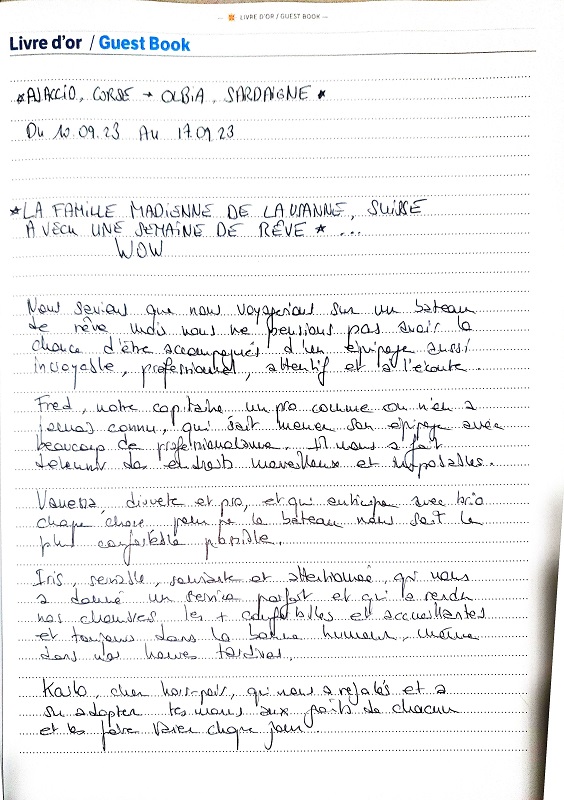 LIVRE D'OR / GUEST BOOK
Livre d'or / Guest Book
★AJACCIO, CORSE → OLBIA, SARDAIGNE★
DU 10.09.23 AU 17.09.23
★LA FAMILLE MADIENNE DE LAUSANNE, SUISSE
A VÉCU UNE SEMAINE DE RÊVE★...
WOW
Nous savions que nous voyagerions sur un bateau
de rêve mais nous ne pensions pas avoir la
chance d'être accompagnés d'un équipage aussi
incroyable, professionnel, attentif et à l'écoute.
Fred, notre capitaine un pro comme on n'en a
jamais connu, qui sait mener son équipage avec
beaucoup de professionalisme. Il nous a fait
découvrir des endroits merveilleux et
Vanessa, discrète et pro, et qui anticipe avec brio
chaque chose pour que le bateau nous soit le
plus confortable possible.
Iris, sensible, souriante et attentionnée, qui nous
a donné un service parfait et qui a rendu
nos chambres les + confortables et accueillantes
et toujours dans la bonne humeur, même
dans nos heures tardives.
Karlo, chef hors-pair, qui nous a régalés et a
su adapter les menus aux goûts de chacun
et les faire varier chaque jour.